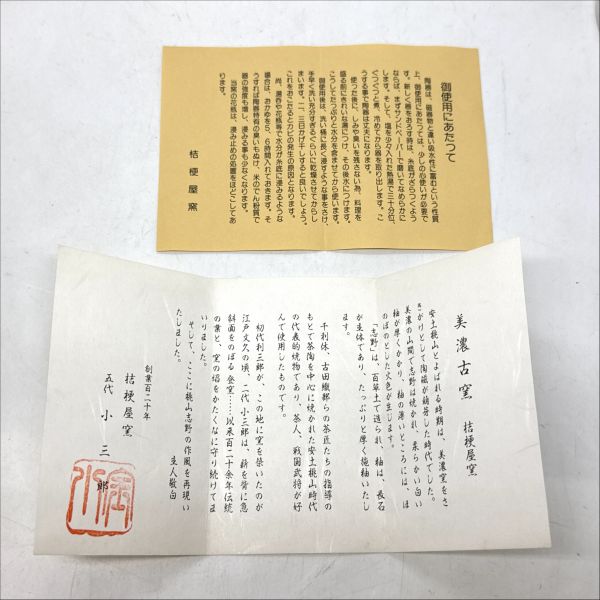 御使用にあたって
陶器は、磁器物と違い吸水性に富むという性質
上、御使用にあたっては、少しの心使いが必要で
す。新しく器をおろす時は、糸底がざらつくよう
ならば、まずサンドペーパーで磨いてなめらかに
します。そして、塩を少々入れた熱湯で三十分位、
ぐつぐつと煮、冷めてから器を取り出します。こ
うする事で陶器は丈夫になります。
使った後に、しみや臭いを残さない為、料理を
盛る前にきれいな湯につけ、その後水につけます。
こうしてたっぷりと水分を含ませてから使います。
御使用後は、洗い桶に長く浸すような事をさけ、
手早く洗い充分すぎるぐらいに乾燥させてからし
まいます。二、三日かげ干しすると良いでしょう。
これをおこたるとカビの発生の原因となります。
尚、湯呑や花瓶等で水分が糸底に浸みるような
場合は、おかゆを5、6時間入れておきます。そ
うすれば陶器特有の臭いもぬけ、米のでん粉質で
器の強度も増し、浸みる事も少なくなります。
当窯の花瓶は、浸み止めの処置をほどこしてあ
ります。
桔梗屋窯
美濃古窯 桔梗屋窯
安土桃山とよばれる時期は、美濃窯をさ
きがりとして陶磁が勃筈した時代でした。
美濃の山間で志野は焼かれ、柔らかい白い
釉が厚くかかり、釉の薄いところには、ほ
のぼのとした火色が生じます。
「志野」は、百草土で造られ、釉は、長石
が主体であり、たっぷりと厚く施釉いたし
ます。
千利休、古田織部らの茶匠たちの指導の
もとで茶陶を中心に焼かれた安土桃山時代
の代表的焼物であり、茶人、戦国武将が好
んで使用したものです。
初代利三郎が、この地に窯を築いたのが
江戸文久の頃、二代小三郎は、薪を背に急
斜面をのぼる登窯……以来百二十余年伝統
の業と、窯の焔をかたくなに守り続けてま
いりました。
そして、ここに桃山志野の作風を再現い
たしました。
主人敬白
創業百二十年
桔梗屋窯
五代 小三郎